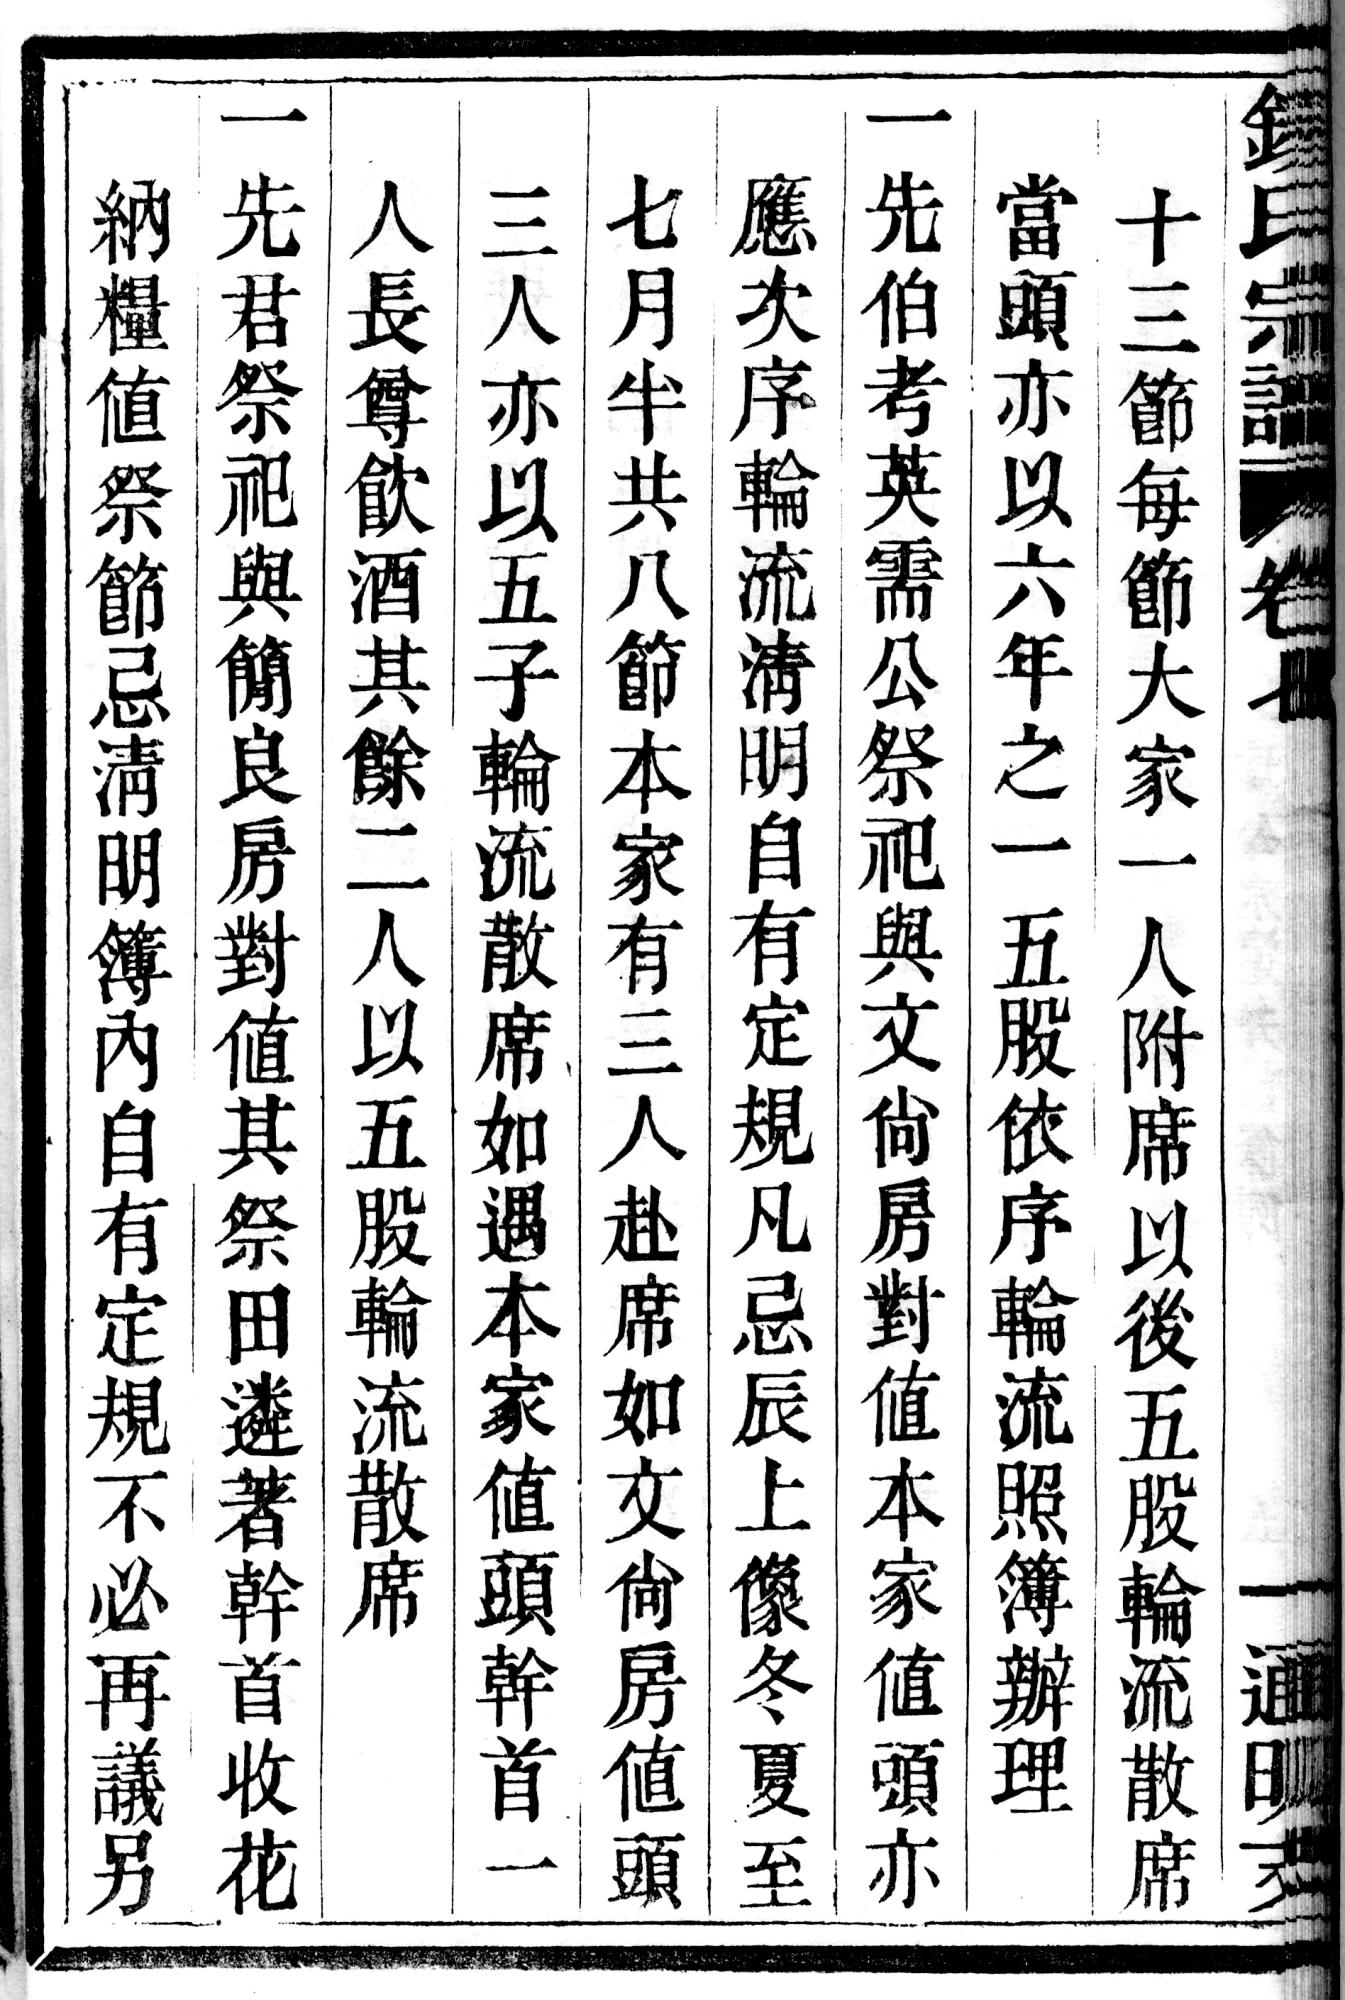 氏宗譜 卷七 一
十三節每節大家一人附席以後五股輪流散席
當頭亦以六年之一五股依序輪流照簿辦理
一先伯考英需公祭祀與文尙房對値本家値頭亦
應次序輪流淸明自有定規凡忌辰上像冬夏至
七月半共八節本家有三人赴席如文尙房値頭
三人亦以五子輪流散席如遇本家値頭幹首一
人長尊飮酒其餘二人以五股輪流散席
一先君祭祀與簡良房對値其祭田遴著幹首收花
納糧値祭節忌淸明簿內自有定規不必再議另